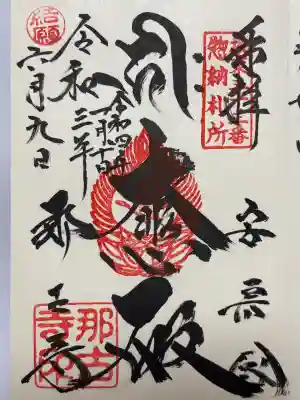 奉拝
惣納札所
安房国
大悲殿
令和三年
六月九日
結願
那古寺
那古寺印